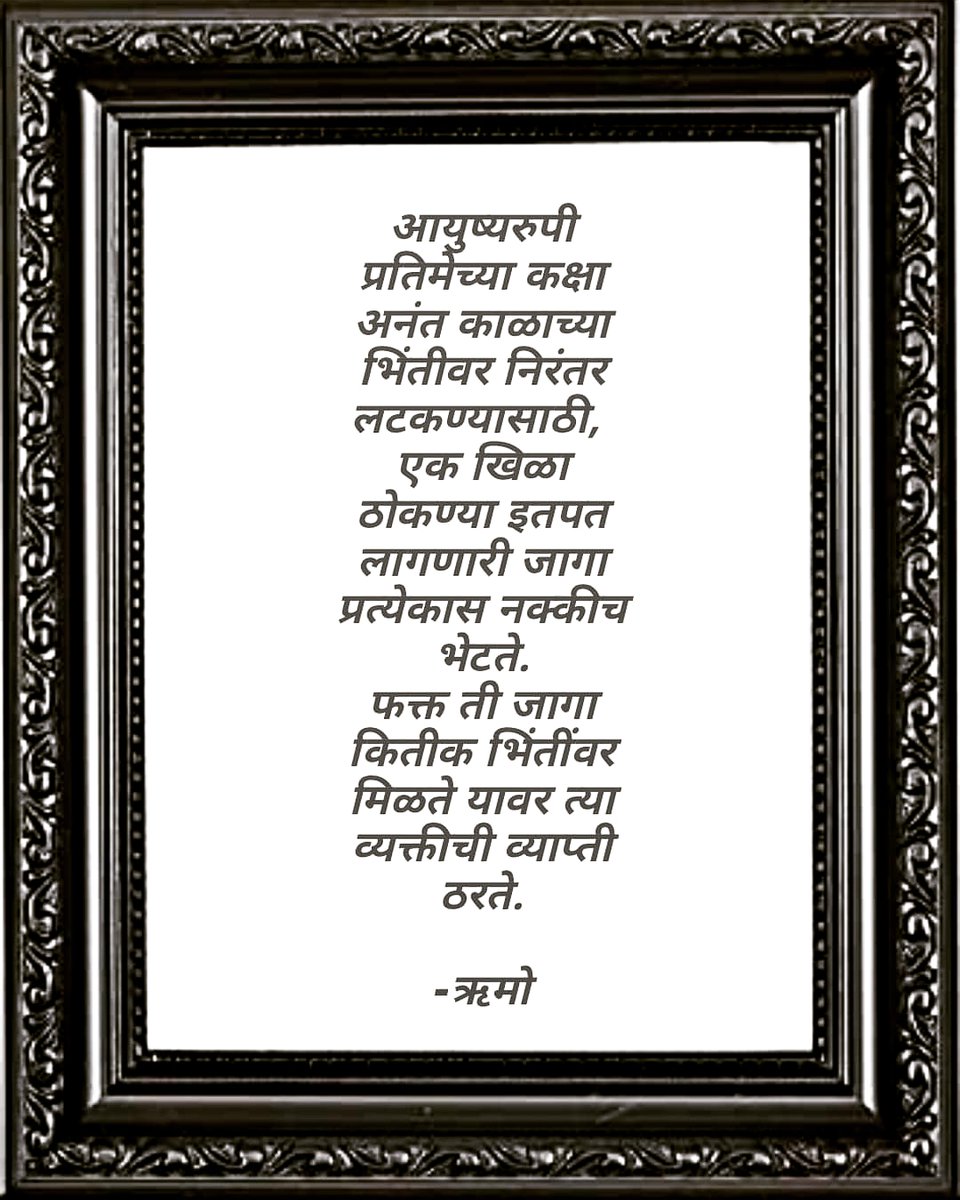 आयुष्यरुपी
प्रतिमेच्या कक्षा
अनंत काळाच्या
भिंतीवर निरंतर
लटकण्यासाठी,
एक खिळा
ठोकण्या इतपत
लागणारी जागा
प्रत्येकास नक्कीच
भेटते.
फक्त ती जागा
कितीक भिंतींवर
मिळते यावर त्या
व्यक्तीची व्याप्ती
ठरते.
-ऋमो